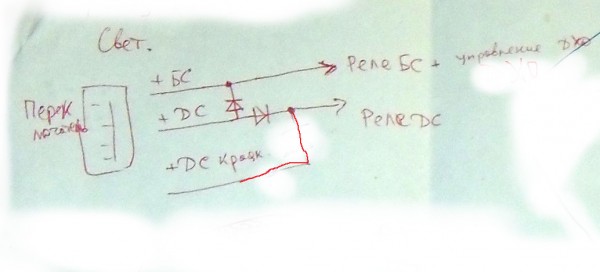 Свет.
+ БС
Реле БС + управление
Перек
+ ДС
Реле ДС
+ ДС кратк.